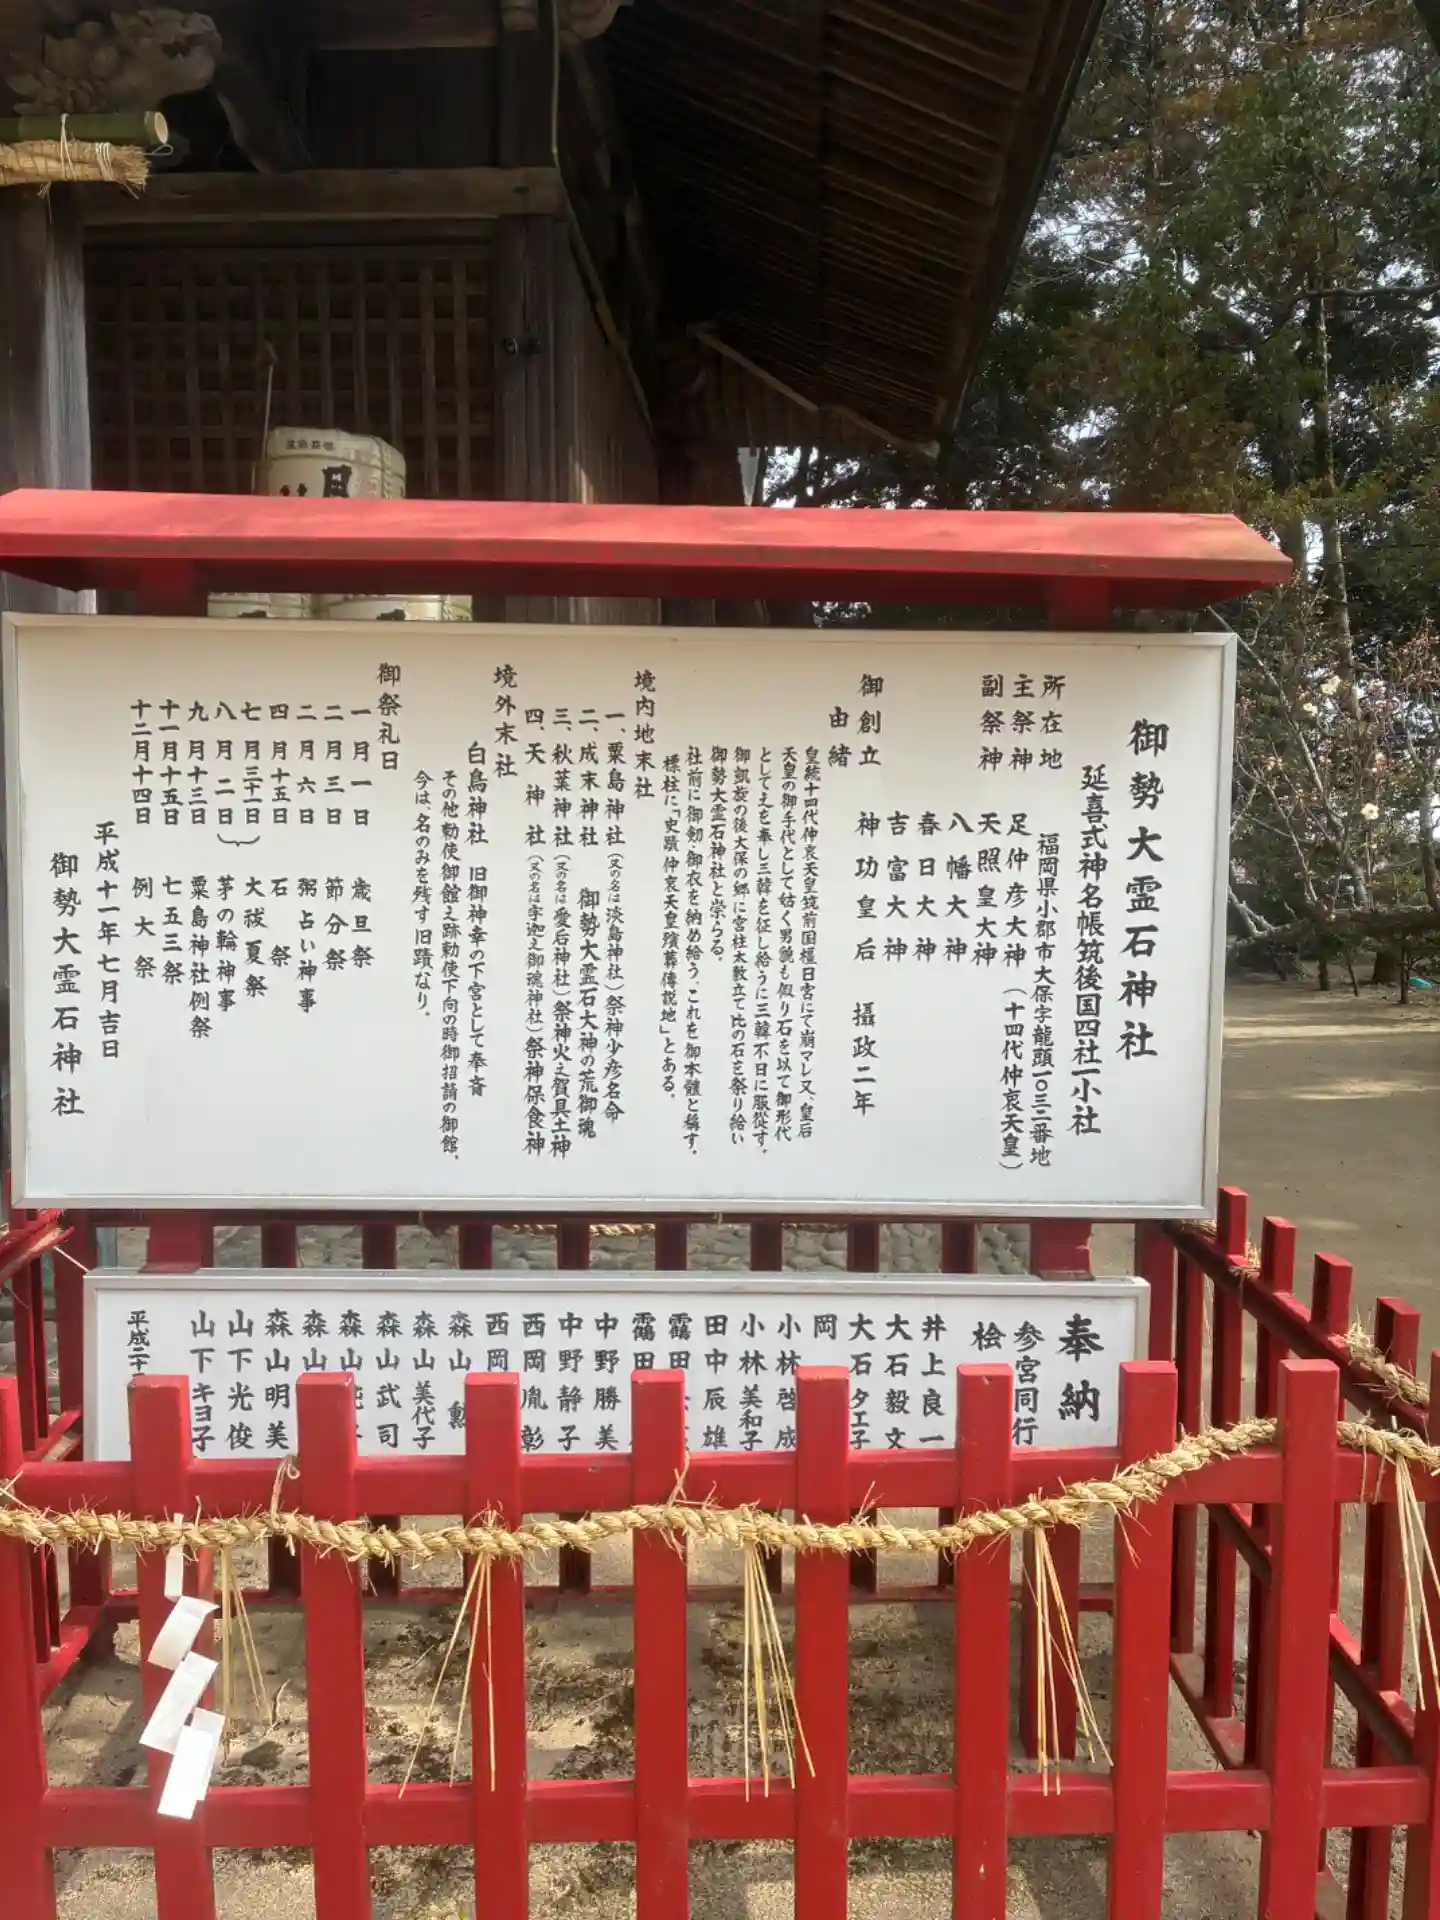 御勢大霊石神社
延喜式神名帳筑後国四社一小社
所在地 福岡県小郡市大保字龍頭一〇三二番地
主祭神 足仲彦大神(十四代仲哀天皇)
副祭神 天照皇大神
八幡大神
春日大神
吉富大神
御創立 神功皇后 攝政二年
由緒
皇統十四代仲哀天皇筑前国橿日宮にて崩マレ又、皇后
天皇の御手代として姑く男貌も假り石を以て御形代
としてえを奉し三韓を征し給うに三韓不日に服從す。
御凱旋の後大保の郷に宮柱太敷立て比の石を祭り給い
御勢大霊石神社と崇らる。
社前に御劒・御衣を納め給う、これを御本體と稱す。
標柱に「史蹟 仲哀天皇殯葬傳説地」とある。
境内地末社
一、粟島神社(又の名は淡島神社)祭神少彦名命
二、成末神社 御勢大霊石大神の荒御魂
三、秋葉神社(又の名は愛宕神社)祭神火之賀具土神
四、天神社(又の名は宇迦之御魂神社)祭神保食神
境外末社
白鳥神社 旧御神幸の下宮として奉斎
その他勅使御館え跡勅使下向の時御招請の御館。
今は、名のみを残す旧蹟なり。
御祭礼日
一月一日 歳旦祭
二月三日 節分祭
二月六日 粥占い神事
四月十五日 石祭
七月三十一日 大祓夏祭
八月二日 茅の輪神事
九月十三日 粟島神社例祭
十一月十五日 七五三祭
十二月十四日 例大祭
平成十一年七月吉日
御勢大霊石神社
奉納
参宮同行
桧
井上良一
大石毅文
大石タエ子
岡
小林啓成
小林美和子
田中辰雄
靍田
靍田
中野勝美
中野静子
西岡胤彰
西岡
森山勲
森山美代子
森山武司
森山
森山
森山明美
山下光俊
山下キヨ子
平成二十